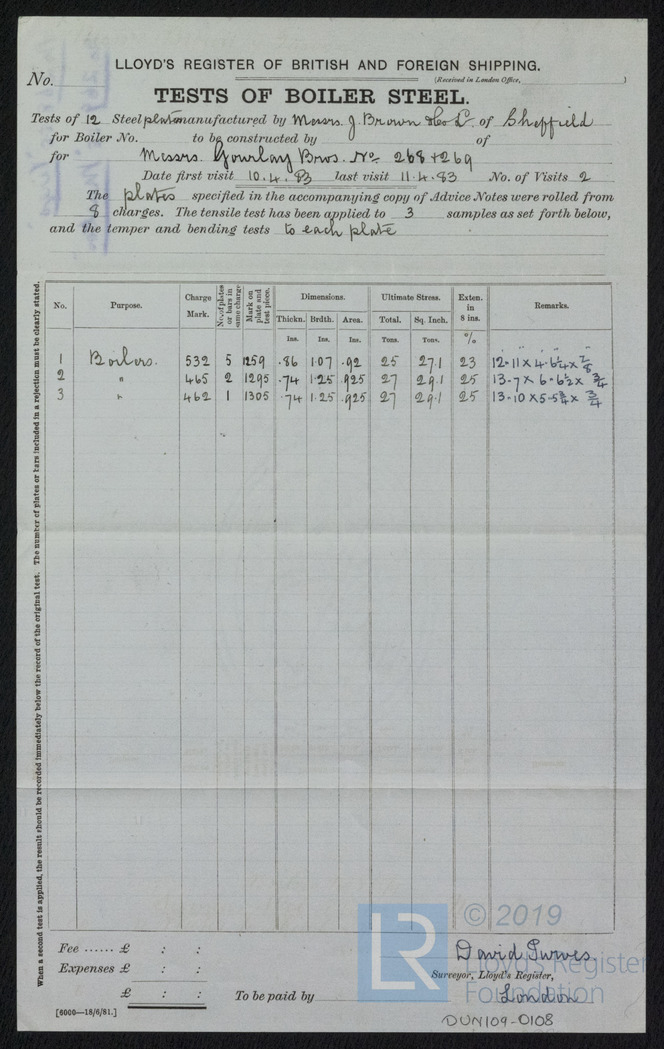 LLOYD'S REGISTER OF BRITISH AND FOREIGN SHIPPING.
No. (Received in London Office, )
TESTS OF BOILER STEEL.
Tests of 12 Steel plates manufactured by Messrs. J. Brown & Co Ld. of Sheffield
for Boiler No. to be constructed by of
for Messrs. Gourlay Bros. No 268 + 269
Date first visit 10.4.83 last visit 11.4.83 No. of Visits 2
The plates specified in the accompanying copy of Advice Notes were rolled from
8 charges. The tensile test has been applied to 3 samples as set forth below,
and the temper and bending tests to each plate
No. Purpose. Charge Mark. No. of plates or bars in same charge Mark on plate and test piece. Dimensions. Ultimate Stress. Exten. in 8 ins. Remarks.
Thickn. Brdth. Area. Total. Sq. Inch.
Ins. Ins. Ins. Tons. Tons. %
1 Boilers. 532 5 1259 .86 1.07 .92 25 27.1 23 12-11 x 4-6¼ x ⅞
2 " 465 2 1295 .74 1.25 .925 27 29.1 25 13-7 x 6-6½ x ¾
3 " 462 1 1305 .74 1.25 .925 27 29.1 25 13-10 x 5-5¾ x ¾
When a second test is applied, the result should be recorded immediately below the record of the original test. The number of plates or bars included in a rejection must be clearly stated.
Fee ...... £ : :
Expenses £ : :
£ : :
To be paid by
David Purves.
Surveyor, Lloyd's Register,
London
[6000—18/6/81.]
DUN109-0108
LR © 2019
Lloyd's Register
Foundation